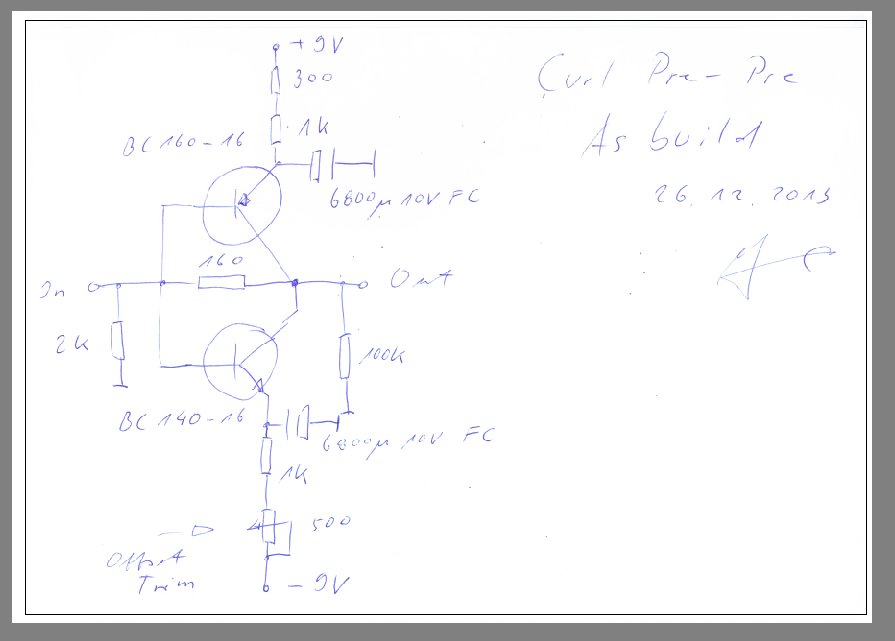 + 9V
300
1k
BC 160-16
6800µ 10V FC
160
In
Out
2k
100k
BC 140-16
6800µ 10V FC
1k
500
Offset
Trim
- 9V
Curl Pre-Pre
As build
26.12.2013